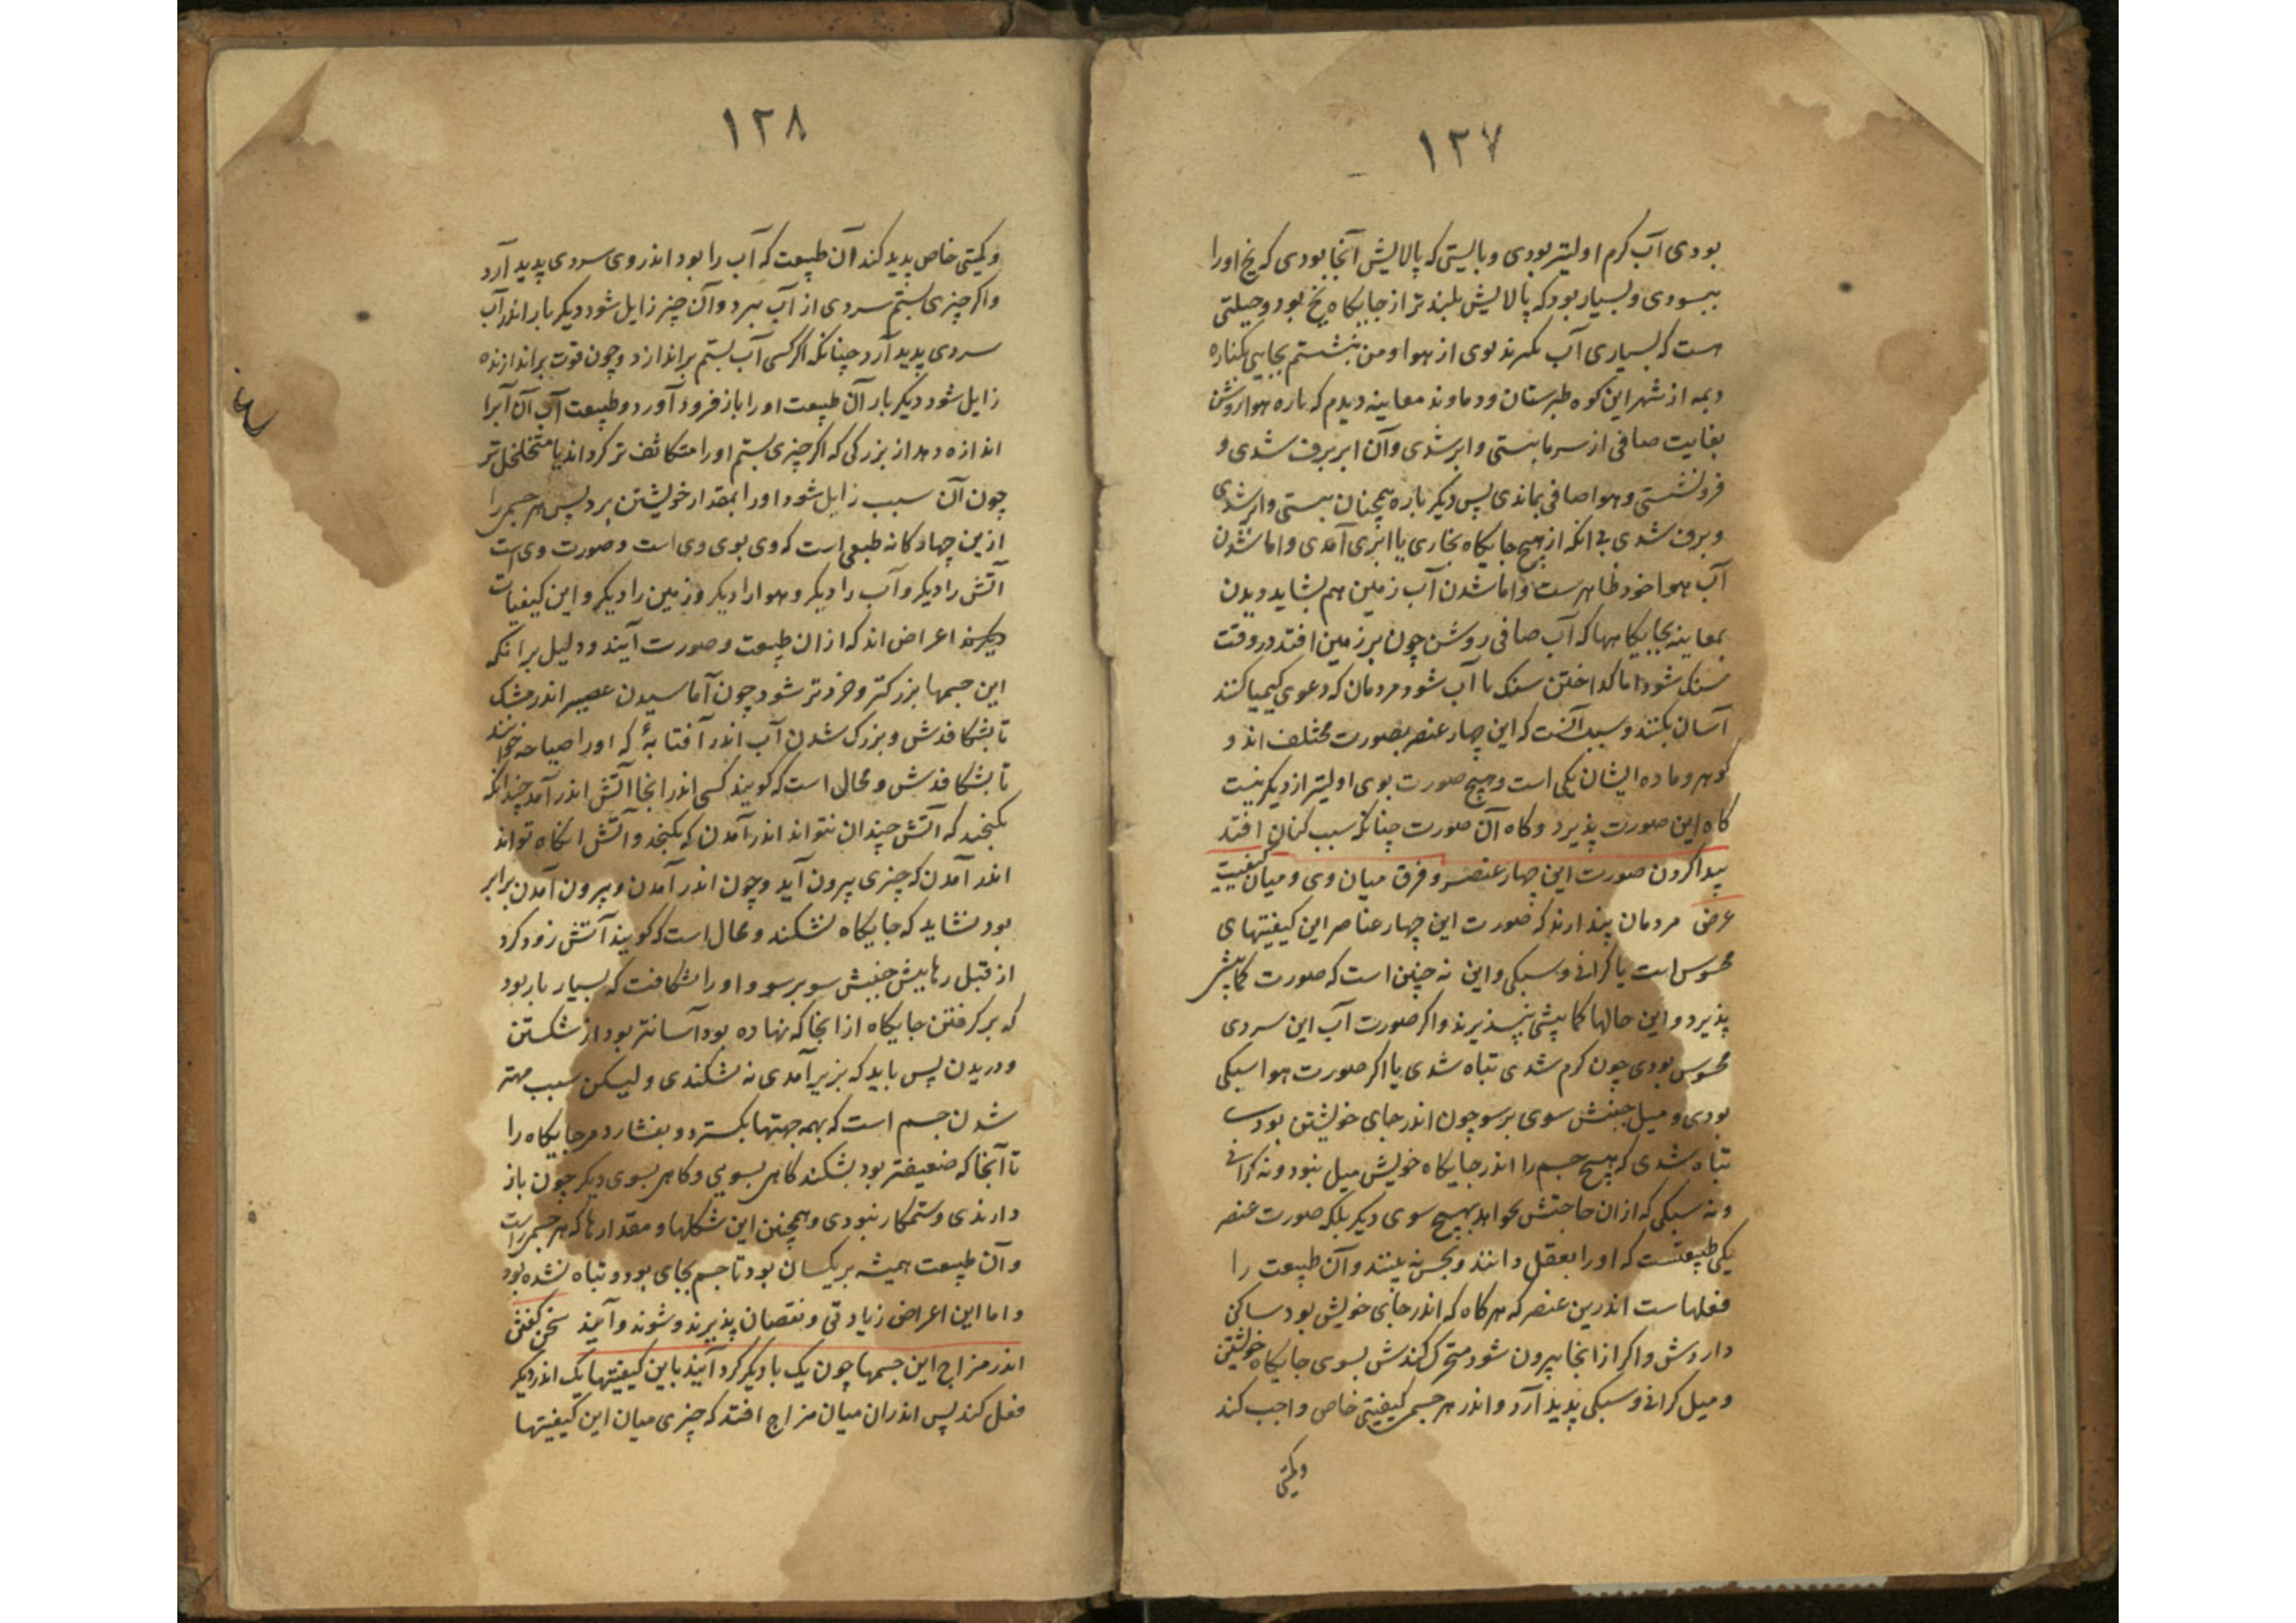 ۱۲۷
بودی آب کرم اولیتر بودی و بایستی که پالایش آنجا بودی که یخ اورا
ببسودی و بسیار بود که پالایش بلندتر از جایکاه یخ بود و حیلتی
هست که بسیاری آب بوی از هوا و من بجایی بکناره
دیمه از شهر این کوه طبرستان و دماوند معاینه دیدم که پاره هوا روشن
بغایت صافی از سرما ببستی و ابر شدی و آن ابر برف شدی و
فرونشستی و هوا صافی بماندی پس دیکر باره همچنان ببستی و ابر شدی
و برف شدی بی انکه از هیچ جایکاه بخاری یا ابری آمدی و اما شدن
آب هوا خود ظاهرست و اما شدن آب زمین هم بشاید دیدن
بمعاینه بجایکاهها که آب صافی روشن چون بر زمین افتد در وقت
سنک شود اما کداختن سنک تا آب شود مردمان که دعوی کیمیا کنند
آسان بکنند و سبب آنست که این چهار عنصر بصورت مختلف اند و
کوهر و ماده ایشان یکی است و هیچ صورت بوی اولیتر از دیکر نیست
کاه این صورت پذیرد و کاه آن صورت چنانکه سبب کنان افتد
پیدا کردن صورت این چهار عنصر و فرق میان وی و میان کیفیت
عرض مردمان پندارند که صورت این چهار عناصر این کیفیتهای
محسوس است یا کرانی و سبکی و این نه چنین است که صورت کمابیشی
پذیرد و این حالها کمابیشی بپذیرند و اکر صورت آب این سردی
محسوس بودی چون کرم شدی تباه شدی یا اکر صورت هوا سبکی
بودی و میل جنبش سوی برسو چون اندر جای خویشتن بودی
تباه شدی که هیچ جسم را اندر جایکاه خویش میل نبود و نه کرانی
و نه سبکی که ازان حاجتش نخواهد بهیچ سوی دیکر بلکه صورت عنصر
یکی طبیعتست که اورا بعقل دانند و بحس نه بینند و آن طبیعت را
فعلهاست اندرین عنصر که هرکاه که اندر جای خویش بود ساکن
داردش و اکر از انجا بیرون شود متحرک کندش بسوی جایکاه خویشتن
و میل کرانی و سبکی پدید آرد و اندر هر جسمی کیفیتی خاص واجب کند
و کمیتی
۱۲۸
و کمیتی خاص پدید کند آن طبیعت که آب را بود اندر وی سردی پدید آرد
و اکر چیزی بستم سردی از آب ببرد و آن چیز زایل شود دیکر بار اندر آب
سردی پدید آرد چنانکه اکر کسی آب بستم براندازد و چون قوت براندازنده
زایل شود دیکر بار آن طبیعت اورا باز فرود آورد و طبیعت آب آن آبرا
اندازه دهد از بزرکی که اکر چیزی بستم اورا متکاثف تر کرداند یا متخلخل تر
چون آن سبب زایل شود اورا بمقدار خویشتن برد پس هر جسمی را
ازین چهارکانه طبعی است که وی بوی وی است و صورت وی است
آتش را دیکر و آب را دیکر و هوا را دیکر و زمین را دیکر و این کیفیات
دیکرند اعراض اند که ازان طبیعت و صورت آیند و دلیل برانکه
این جسمها بزرکتر و خردتر شود چون آماسیدن عصیر اندر مشک
تا بشکافدش و بزرک شدن آب اندر آفتابهٔ که اورا صیاحه خوانند
تا بشکافدش و محال است که کویند کسی اندر انجا آتش اندر آمد چندانکه
بکنجید که آتش چندان نتواند اندر آمدن که بکنجد و آتش انکاه تواند
اندر آمدن که چیزی بیرون آید و چون اندر آمدن و بیرون آمدن برابر
بود نشاید که جایکاه بشکند و محال است که کویند آتش زود کرد
از قبل رهایش جنبش سوی برسو و اورا بشکافت که بسیار بار بود
که برکرفتن جایکاه از انجا که نهاده بود آسانتر بود از شکستن
و دریدن پس باید که بزیر آمدی نه بشکندی و لیکن سبب مهتر
شدن جسم است که بهمه جهتها بکسترد و بفشارد مر جایکاه را
تا آنجا که ضعیفتر بود بشکند کاهی بسویی و کاهی بسوی دیکر چون باز
دارندی و ستمکار نبودی و همچنین این شکلها و مقدارها که هر جسمی راست
و آن طبیعت همیشه بر یکسان بود تا جسم بجای بود و تباه نشده بود
و اما این اعراض زیادتی و نقصان پذیرند و شوند و آیند سخن کفتن
اندر مزاج این جسمها چون یک با دیکر کرد آیند باین کیفیتها یک اندر دیکر
فعل کند پس اندران میان مزاج افتد که چیزی میان این کیفیتها